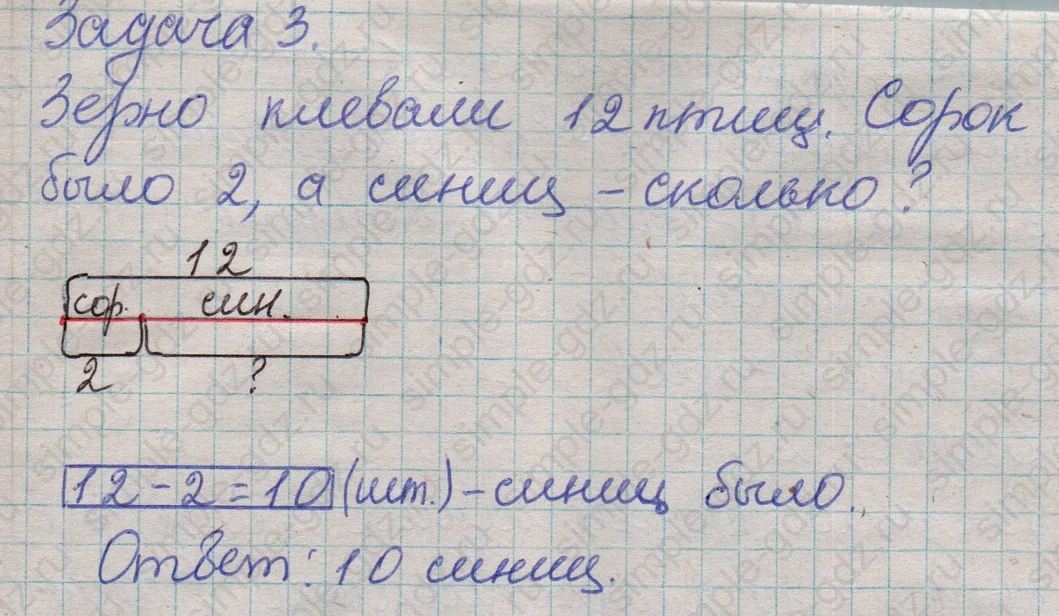 Задача 3.
Зерно клевали 12 птиц. Сорок
было 2, а синиц – сколько?
12
сор. син.
2 ?
12 – 2 = 10 (шт.) – синиц было.
Ответ: 10 синиц.
simple-gdz.ru